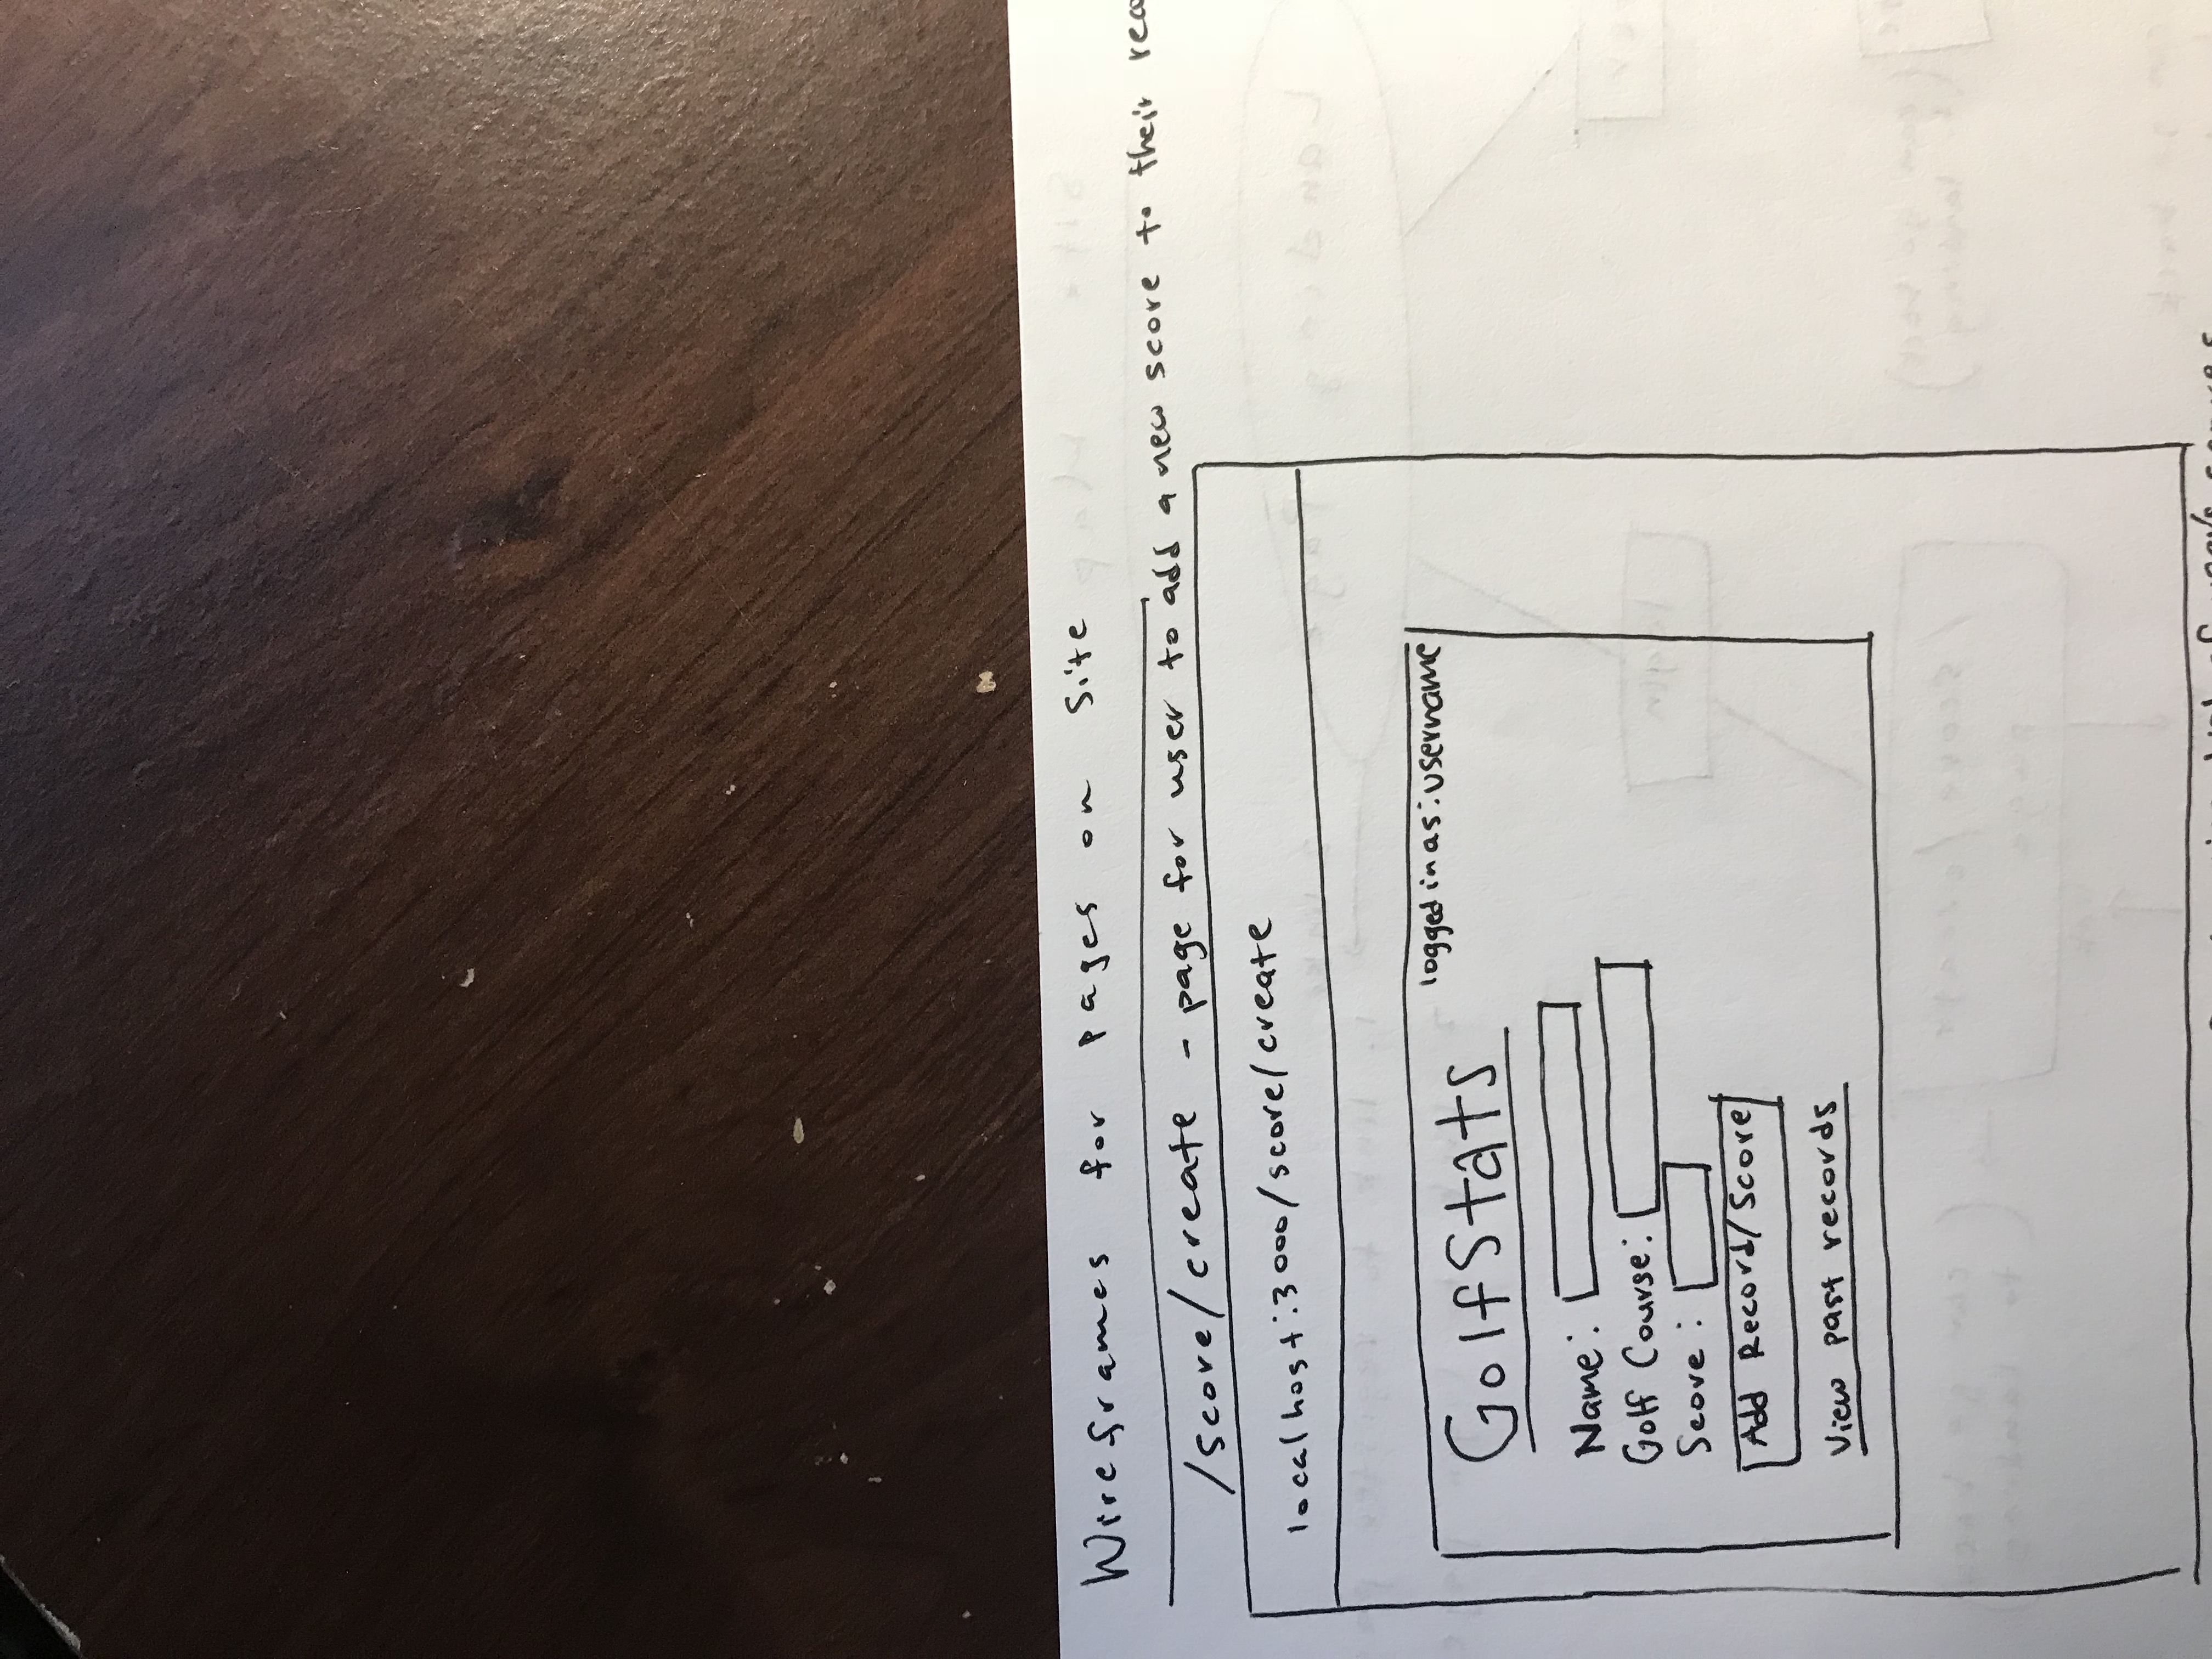 Wireframes for pages on Site
/score/create - page for user to add a new score to their
localhost:3000/score/create
logged in as: username
GolfStats
Name:
Golf Course:
Score:
Add Record/Score
View past records